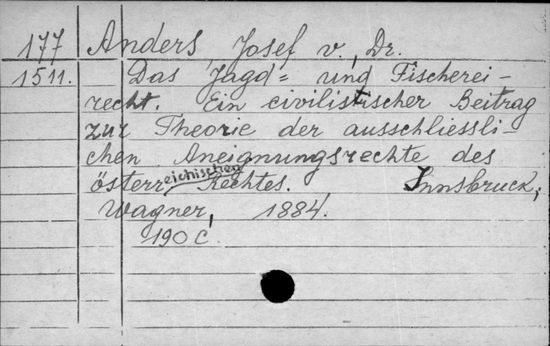 177 Anders Josef v. Dr.
1511. Das Jagd= und Fischerei-
recht. Ein civilistischer Beitrag
zur Theorie der ausschliessli-
chen Aneignungsrechte des
österreichischen Rechtes. Innsbruck,
Wagner, 1884.
190 C.